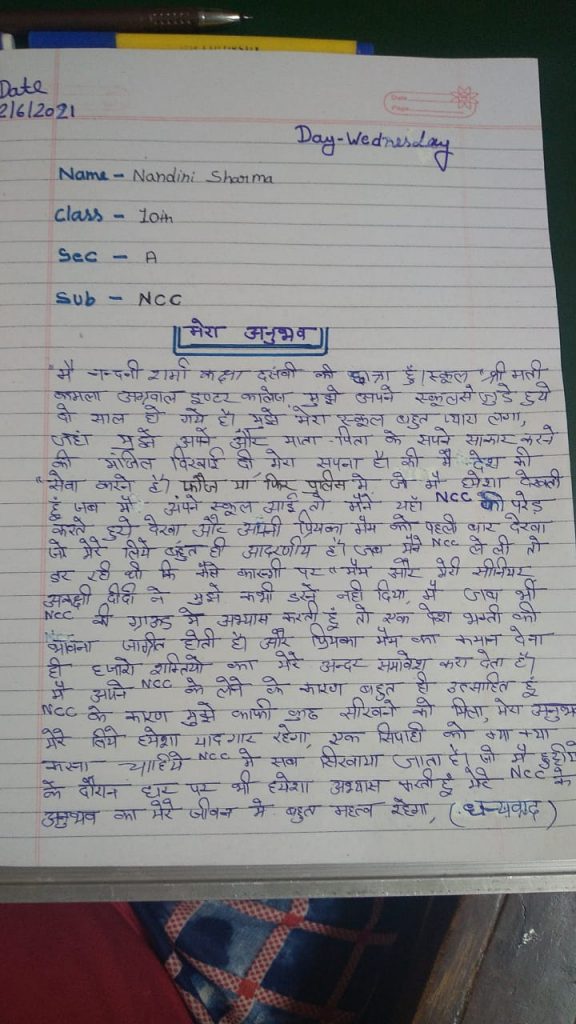 Date
2/6/2021
Date
Page
Day-Wednesday
Name - Nandini Sharma
Class - 10th
Sec - A
Sub - NCC
मेरा अनुभव
"मै नन्दनी शर्मा कक्षा दसंवी की छात्रा हूँ। स्कूल "श्री मती
कमला अग्रवाल इण्टर कालेज, मुझे अपने स्कूल से जुडे हुये
दो साल हो गये है। मुझे मेरा स्कूल बहुत प्यारा लगा,
जहां मुझे अपने और माता-पिता के सपने साकार करने
की मंजिल दिखाई दी मेरा सपना है। की मैं देश की
सेवा करने है। फौज या फिर पुलिस मे जो मै हमेशा देखती
हूँ जब मैं अपने स्कूल आई तो मैने यहाँ NCC की परेड
करते हुये देखा और अपनी प्रियंका मैम को पहली बार देखा
जो मेरे लिये बहुत ही आदरणीय है। जब मैने NCC ले ली तो
डर रही थी कि कैसे करूगी पर "मैम और मेरी सीनियर
दीदी ने मुझे कभी डरने नही दिया, मैं जब भी
NCC की ग्राउंड मे अभ्यास करती हूँ तो एक देश भक्ती की
भावना जाग्रित होती है। और प्रियका मैम का कमान देना
ही हजारो शक्तियो का मेरे अन्दर समावेश करा देता है।
मैं अपने NCC के लेने के कारण बहुत ही उत्साहित हूँ
NCC के कारण मुझे काफी कुछ सीखने को मिला, मेरा अनुभव
मेरे लिये हमेशा यादगार रहेगा, एक सिपाही को क्या-क्या
करना चाहिये NCC मे सब सिखाया जाता है। जो मैं छुट्टीयो
के दौरान घर पर भी हमेशा अभ्यास करती हूँ मेरे NCC के
अनुभव का मेरे जीवन मे बहुत महत्व रहेगा, (धन्यवाद)